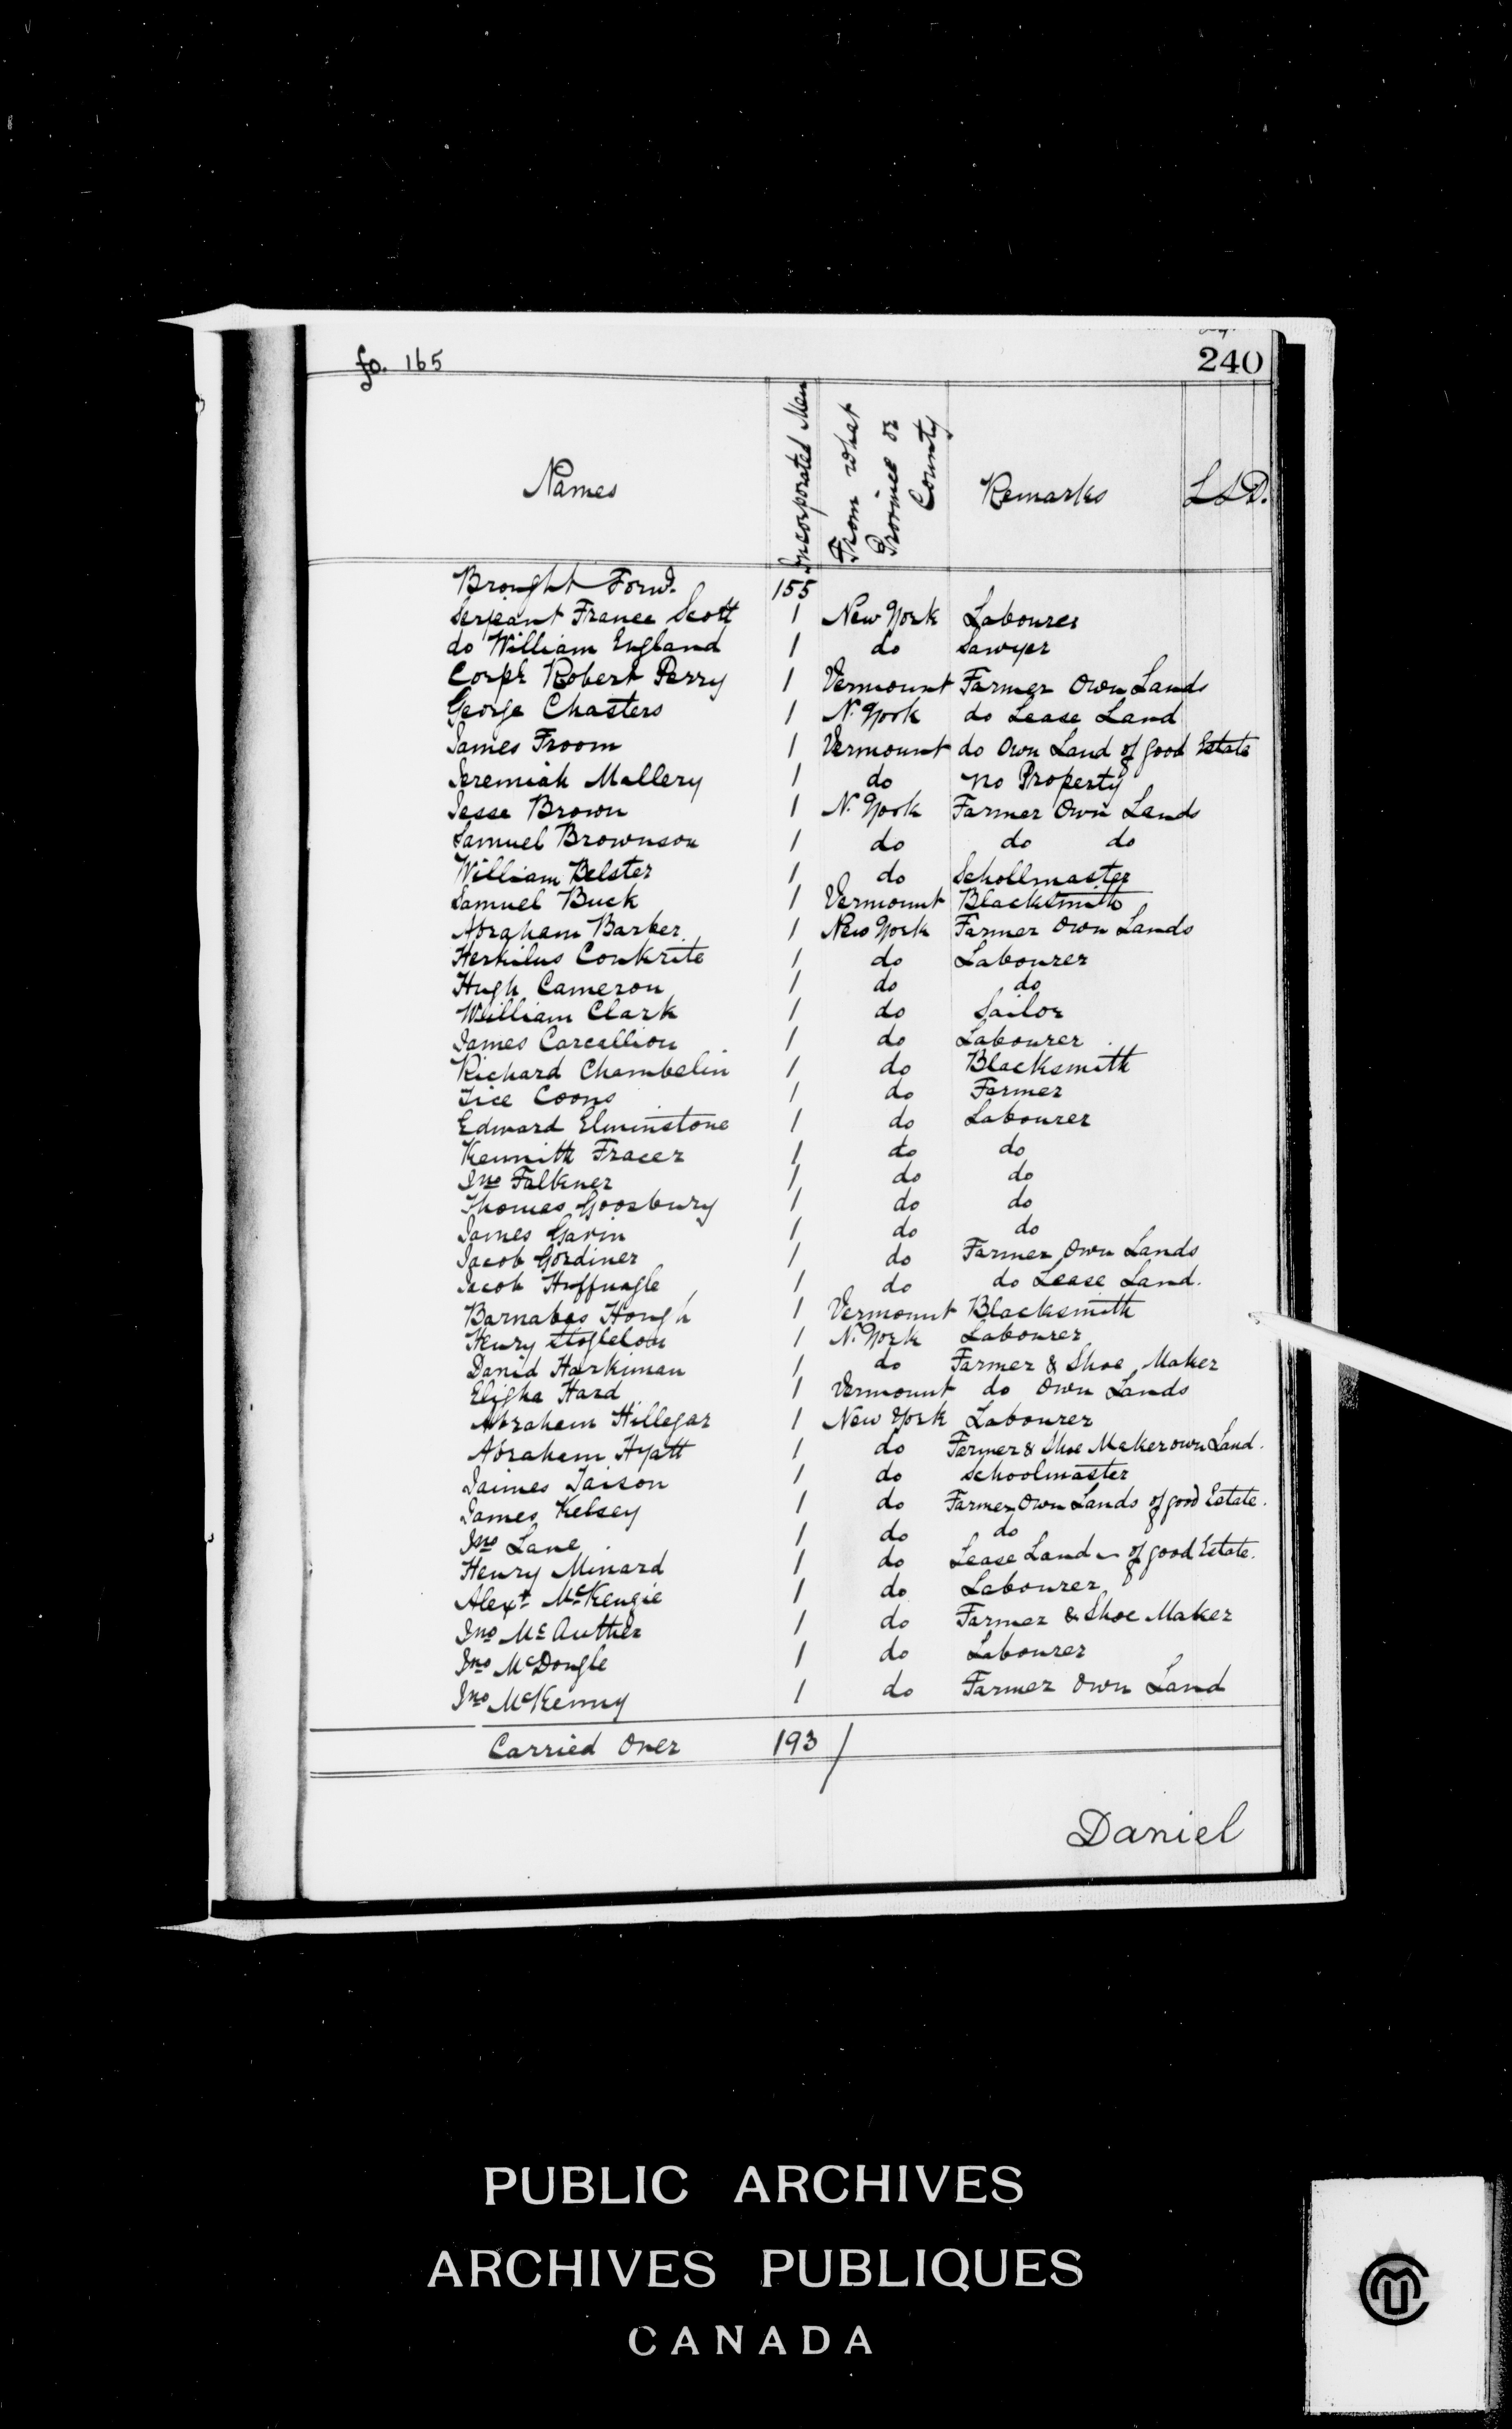 fo. 165
240
Names Incorporated Men From what Province or County Remarks L S D.
Brought Forwd. 155
Serjeant France Scott 1 New York Labourer
do William England 1 do Sawyer
Corpl Robert Perry 1 Vermount Farmer Own Lands
George Chasters 1 N. York do Lease Land
James Froom 1 Vermount do Own Land of good Estate
Jeremiah Mallery 1 do no Property
Jesse Brown 1 N. York Farmer Own Lands
Samuel Brownson 1 do do do
William Belster 1 do Schollmaster
Samuel Buck 1 Vermount Blacksmith
Abraham Barker 1 New York Farmer Own Lands
Herkilus Conkrite 1 do Labourer
Hugh Cameron 1 do do
William Clark 1 do Sailor
James Carcallion 1 do Labourer
Richard Chambelin 1 do Blacksmith
Tice Coons 1 do Farmer
Edward Elminstone 1 do Labourer
Kennith Fracer 1 do do
Jno Falkner 1 do do
Thomas Goosbury 1 do do
James Garin 1 do do
Jacob Gordiner 1 do Farmer Own Lands
Jacob Huffnagle 1 do do Lease Land.
Barnabas Hough 1 Vermount Blacksmith
Henry 1 N. York Labourer
David Harkiman 1 do Farmer & Shoe Maker
Eligha Hard 1 Vermount do Own Lands
Abraham Hillegar 1 New York Labourer
Abraham Hyatt 1 do Farmer & Shoe Maker own Land.
Jaimes Jaison 1 do Schoolmaster
James Kelsey 1 do Farmer Own Lands of good Estate.
Jno Lane 1 do do
Henry Minard 1 do Lease Land of good Estate.
Alexr McKenzie 1 do Labourer
Jno McAuther 1 do Farmer & Shoe Maker
Jno McDougle 1 do Labourer
Jno McKenny 1 do Farmer Own Land
Carried Over 193 /
Daniel
PUBLIC ARCHIVES
ARCHIVES PUBLIQUES
CANADA